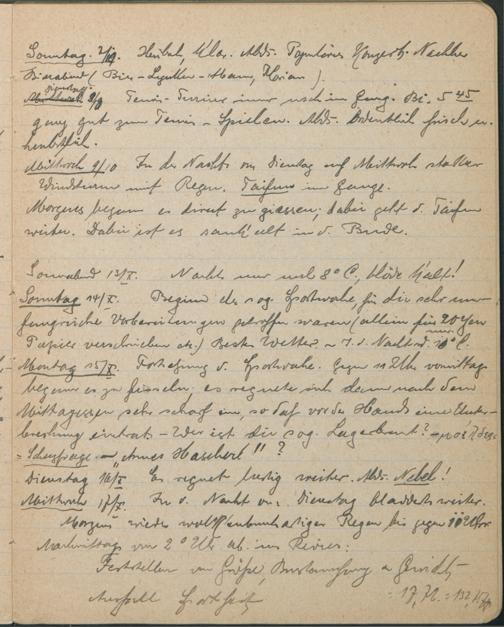 Sonntag. 7/10 Herbst, klar. Abds. Populäres Konzert. Nachher
Bierabend (Bier
Dienstag 9/10 Tennis-Turnier immer noch im Gang. Bis 5 45
ging gut zum Tennis-Spielen. Abds. Ordentlich frisch
herbstlich.
Mittwoch 9/10 In der Nacht von Dienstag auf Mittwoch starker
Windsturm mit Regen. Taifun im Gange.
Morgens begann es direkt zu giessen; dabei geht d. Taifun
weiter. Dabei ist es kalt in d. Bude.
Sonnabend 13/X. Nachts nur noch 8° C, blöde Kält!
Sonntag 14/X. Beginn der sog. Sportwoche, für die sehr um-
fangreiche Vorbereitungen getroffen waren (allein für 20 Yen
Papier verschrieben etc.) Bestes Wetter. I. d. Nacht 10° C.
Montag 15/X. Fortsetzung d. Sportwoche. Gegen 11 Uhr vormittags
begann es zu es regnete sich dann nach dem
Mittagessen sehr scharf ein, so daß vor der Hand eine Unter-
brechung eintrat. - Wer ist die sog. Lagerbraut?
Scherzfrage - "Armes Hascherl"?
Dienstag 16/X Es regnet lustig weiter. Abds. Nebel!
Mittwoch 17/X. In d. Nacht von Dienstag bladderts weiter.
Morgens wieder wolkenbruchartiger Regen bis gegen 10 Uhr
Nachmittags von 2° Uhr ab im Revier:
Feststellen von Größe, Brustumfang u. Gewicht